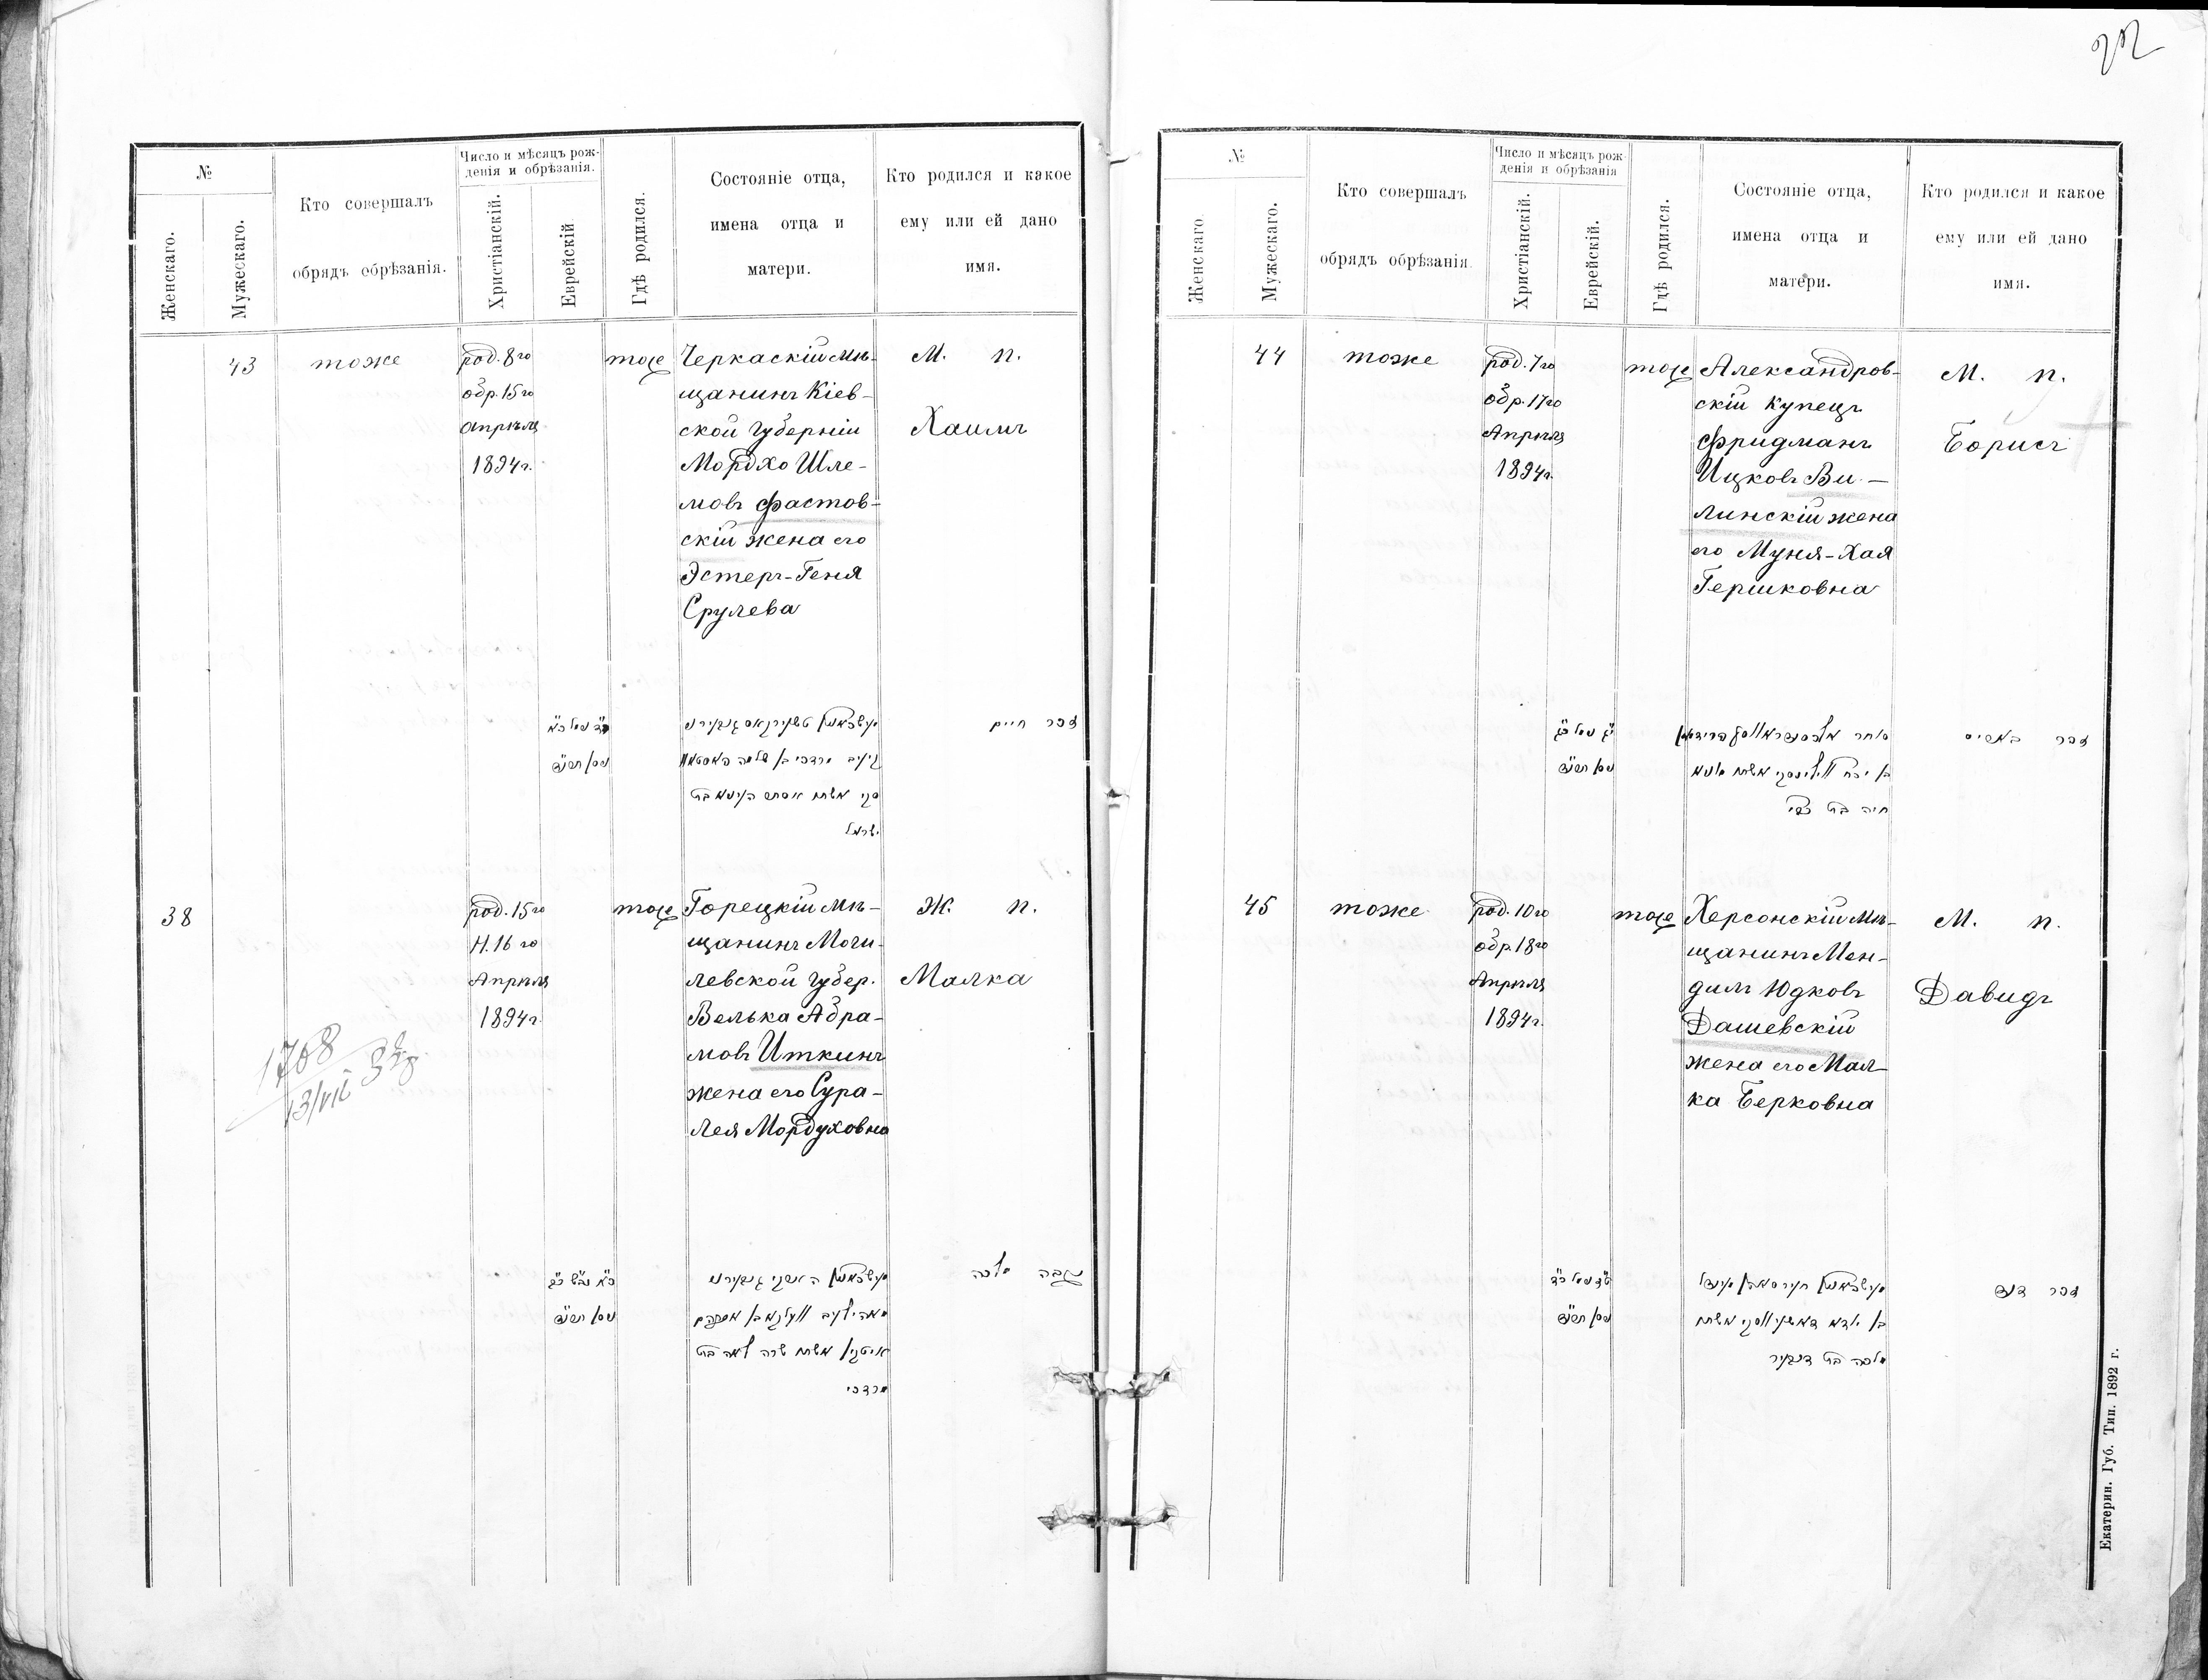 22
№
Женскаго.
Мужескаго.
Кто совершалъ
обрядъ обрѣзанія.
Число и мѣсяцъ рож-
денія и обрѣзанія.
Христіанскій.
Еврейскій
Гдѣ родился.
Состояніе отца,
имена отца и
матери.
Кто родился и какое
ему или ей дано
имя.
43
тоже
род. 8го
обр. 15го
Апрѣля
1894г.
тоже
Черкаскій мѣ-
щанинъ Кіев-
ской губерніи
Мордхо Шле-
мовъ Фастов-
скій жена его
Эстеръ-Геня
Срулева
М. п.
Хаимъ
ניסן תרנ״ד
מרדכי בן שלמה
ישראל
זכר חיים
38
род. 15го
Н. 16го
Апрѣля
1894г.
тоже
Горецкій мѣ-
щанинъ Моги-
левской губер.
Велька Абра-
мовъ Иткинъ
жена его Сура-
Лея Мордуховна
Ж. п.
Малка
1768
13/VII
328
ניסן תרנ״ד
איטקין אשתו שרה לאה בת
מרדכי
נקבה מלכה
№
Женскаго
Мужескаго.
Кто совершалъ
обрядъ обрѣзанія.
Число и мѣсяцъ рож-
денія и обрѣзанія
Христіанскій.
Еврейскій.
Гдѣ родился.
Состояніе отца,
имена отца и
матери.
Кто родился и какое
ему или ей дано
имя.
44
тоже
род. 7го
обр. 17го
Апрѣля
1894г.
тоже
Александров-
скій купецъ
Фридманъ
Ицковъ Ви-
линскій жена
его Муня-Хая
Гершковна
М. п.
Борисъ
ניסן תרנ״ד
חיה בת צבי
זכר
45
тоже
род. 10го
обр. 18го
Апрѣля
1894г.
тоже
Херсонскій мѣ-
щанинъ Мен-
дилъ Юдковъ
Дашевскій
жена его Мал-
ка Берковна
М. п.
Давидъ
ניסן תרנ״ד
מלכה בת
זכר דוד
Екатерин. Губ. Тип. 1892 г.